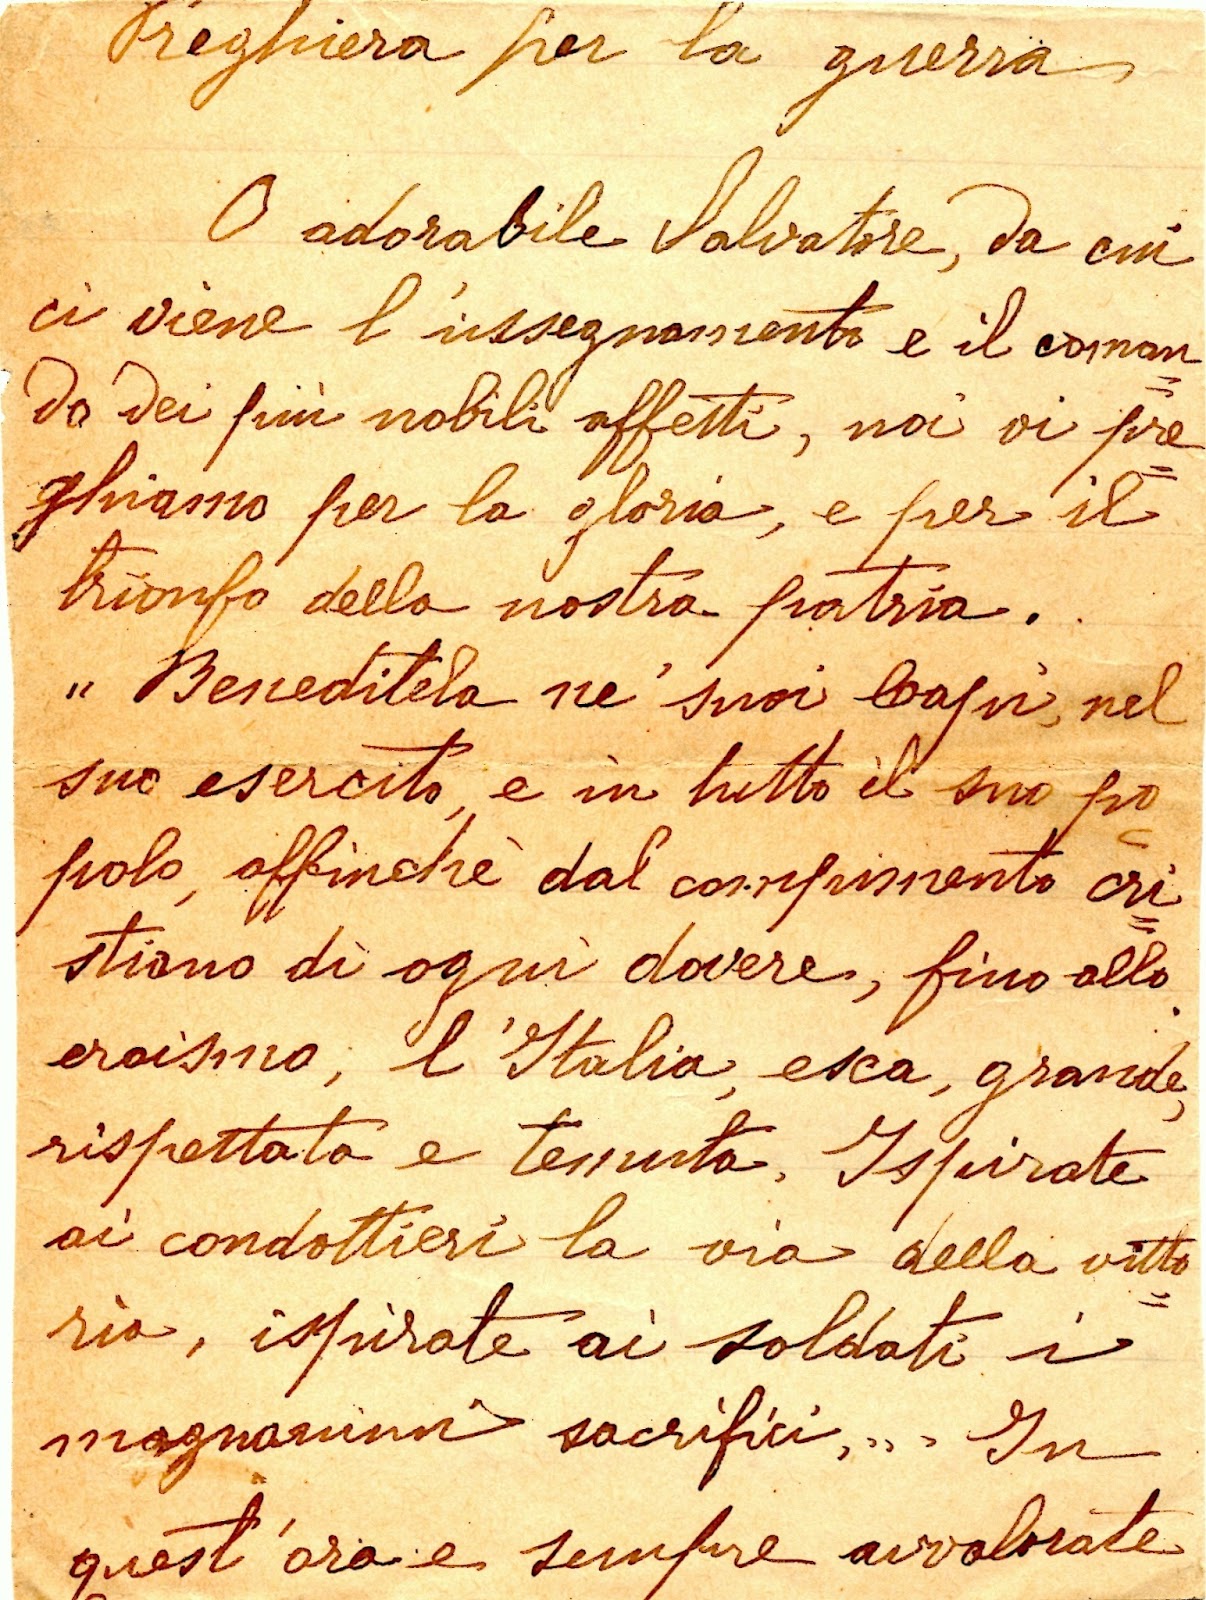 Preghiera per la guerra
O adorabile Salvatore, da cui
ci viene l'issegnamento e il coman=
do dei più nobili affetti, noi vi pre=
ghiamo per la gloria, e per il
trionfo della nostra patria.
" Beneditela ne' suoi Capi, nel
suo esercito, e in tutto il suo po=
polo, affinchè dal compimento cri=
stiano di ogni dovere, fino allo
eroismo, l'Italia, esca, grande,
rispettata e temuta. Ispirate
ai condottieri la via della vitto=
ria, ispirate ai soldati i
magnanimi sacrifici,... In
quest'ora e sempre avvalorate